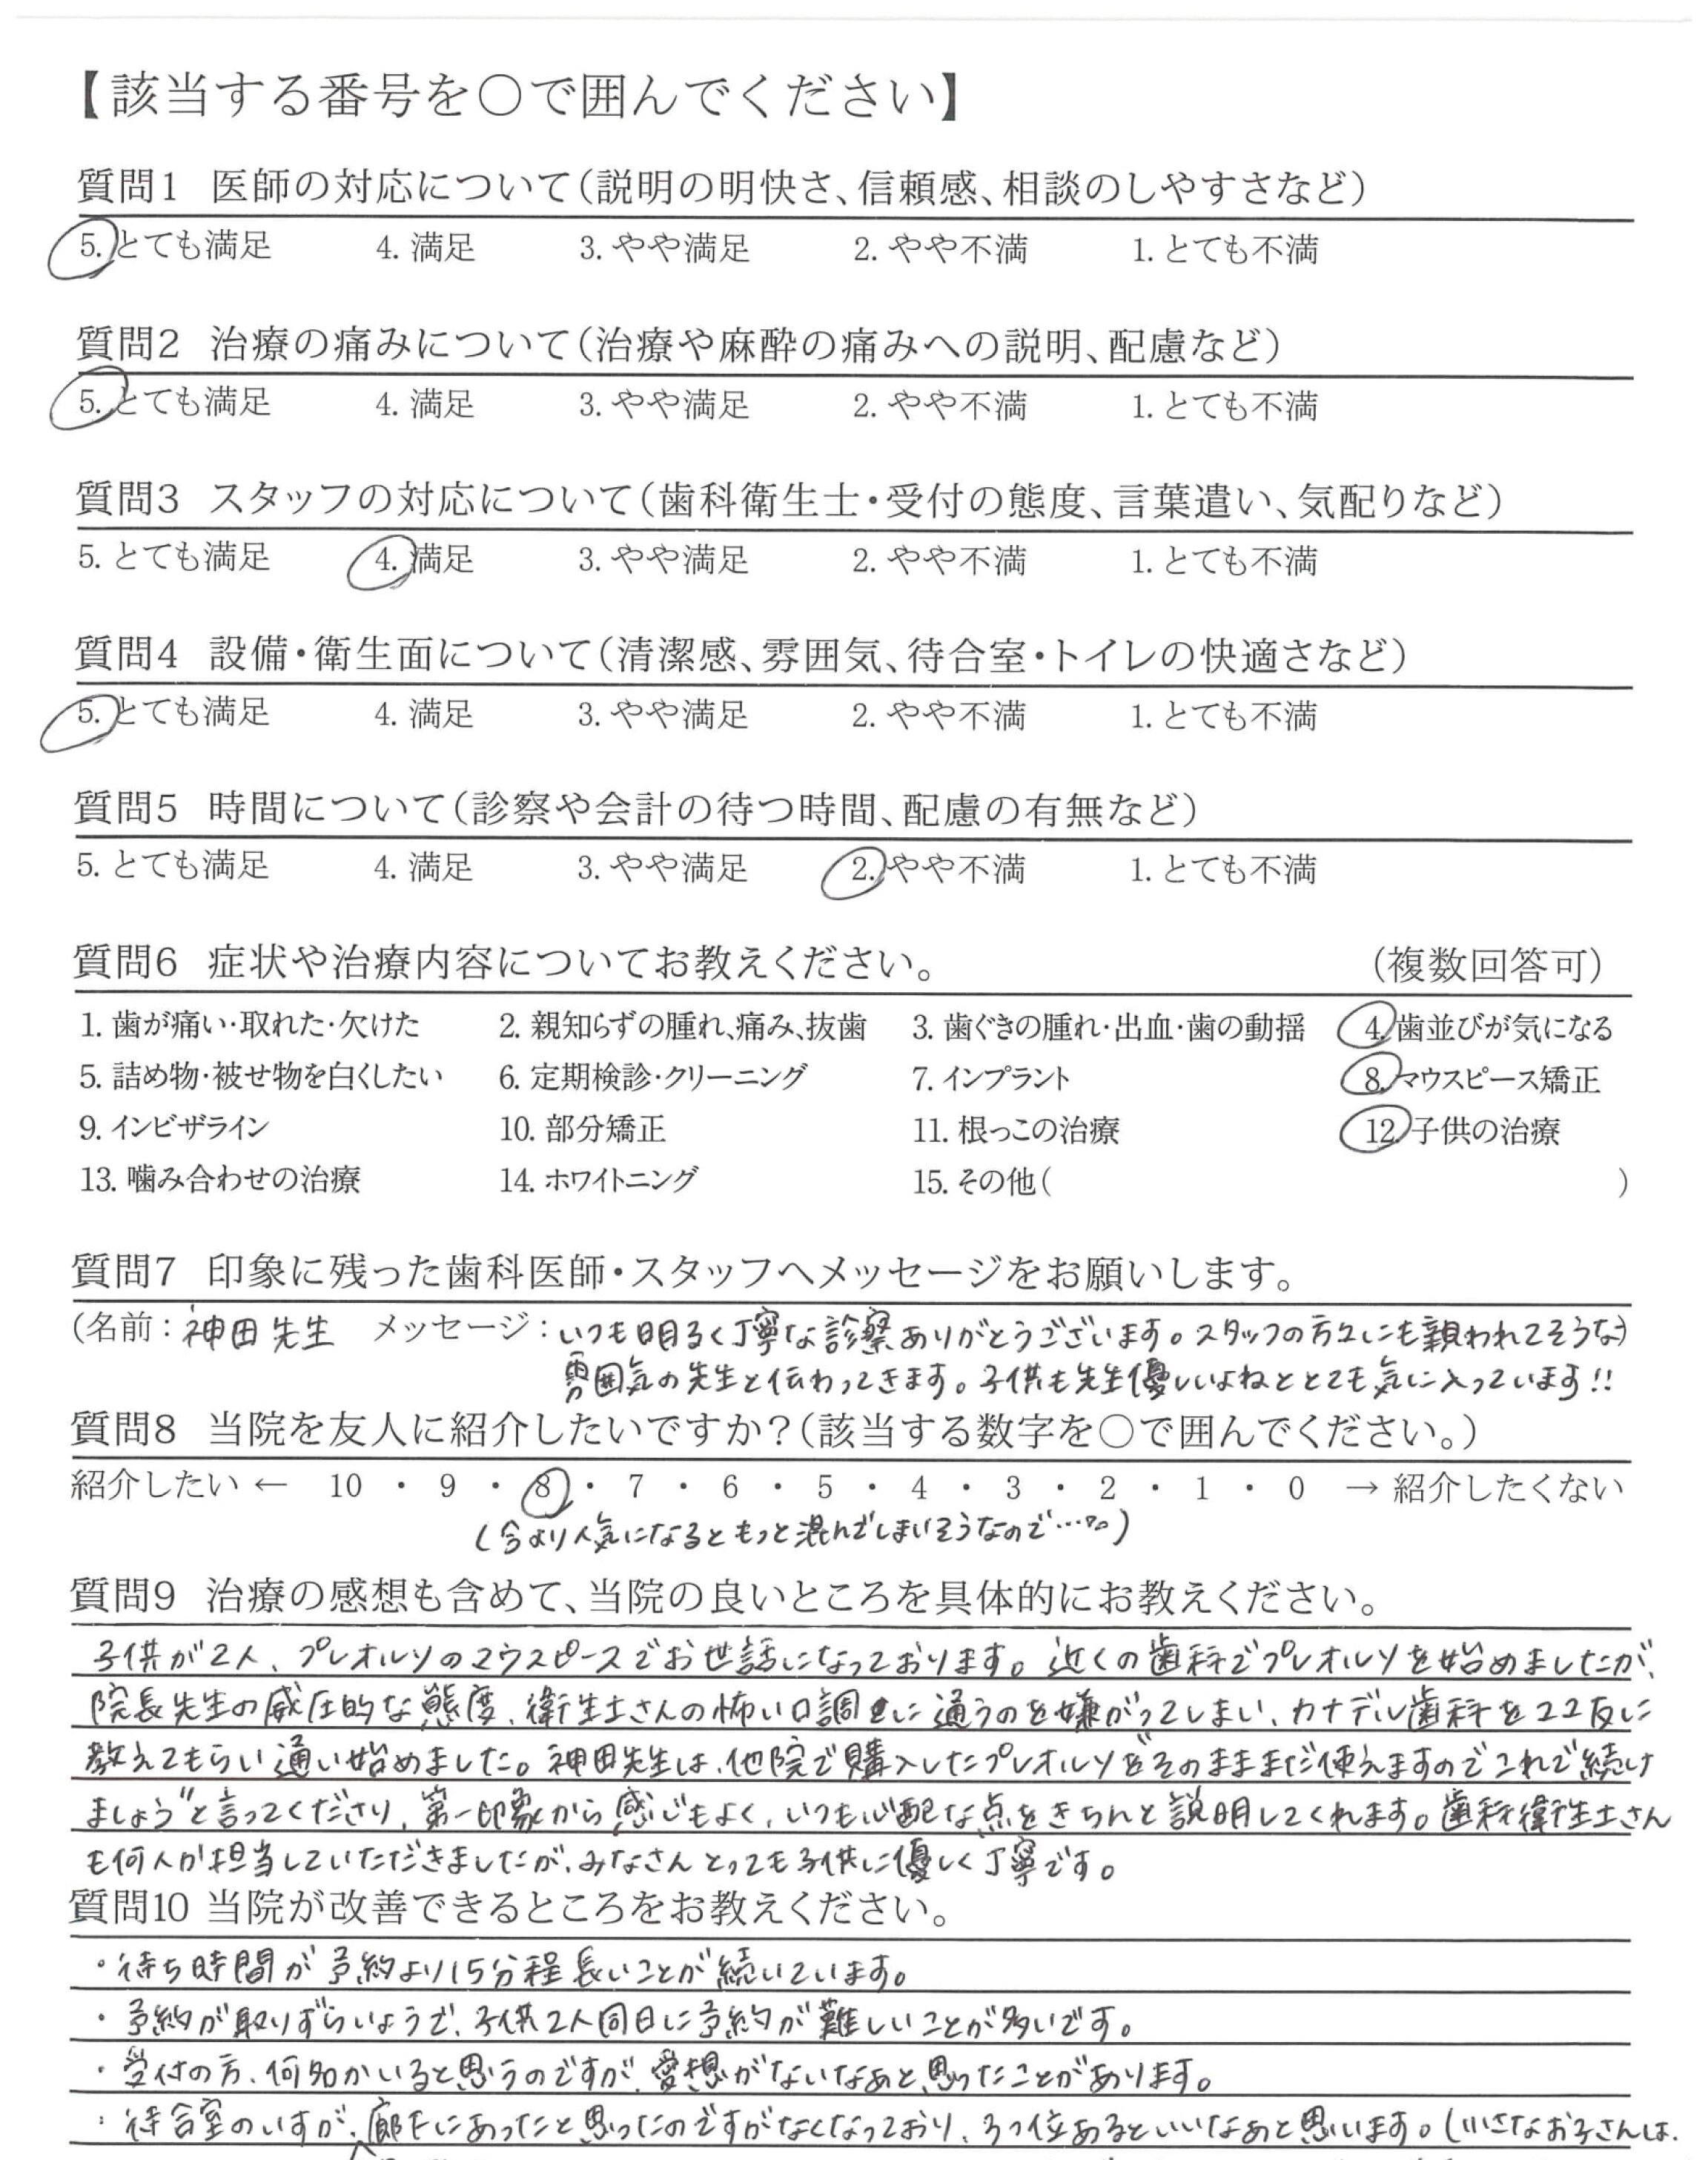 【該当する番号を○で囲んでください】
質問1 医師の対応について(説明の明快さ、信頼感、相談のしやすさなど)
5. とても満足 4. 満足 3. やや満足 2. やや不満 1. とても不満
質問2 治療の痛みについて(治療や麻酔の痛みへの説明、配慮など)
5. とても満足 4. 満足 3. やや満足 2. やや不満 1. とても不満
質問3 スタッフの対応について(歯科衛生士・受付の態度、言葉遣い、気配りなど)
5. とても満足 4. 満足 3. やや満足 2. やや不満 1. とても不満
質問4 設備・衛生面について(清潔感、雰囲気、待合室・トイレの快適さなど)
5. とても満足 4. 満足 3. やや満足 2. やや不満 1. とても不満
質問5 時間について(診察や会計の待つ時間、配慮の有無など)
5. とても満足 4. 満足 3. やや満足 2. やや不満 1. とても不満
質問6 症状や治療内容についてお教えください。 (複数回答可)
1. 歯が痛い・取れた・欠けた 2. 親知らずの腫れ、痛み、抜歯 3. 歯ぐきの腫れ・出血・歯の動揺 4. 歯並びが気になる
5. 詰め物・被せ物を白くしたい 6. 定期検診・クリーニング 7. インプラント 8. マウスピース矯正
9. インビザライン 10. 部分矯正 11. 根っこの治療 12. 子供の治療
13. 噛み合わせの治療 14. ホワイトニング 15. その他( )
質問7 印象に残った歯科医師・スタッフへメッセージをお願いします。
(名前: 神田先生 メッセージ: いつも明るく丁寧な診察ありがとうございます。スタッフの方々にも親われてそうな)
雰囲気の先生と伝わってきます。子供も先生優しいよねととても気に入っています!!
質問8 当院を友人に紹介したいですか?(該当する数字を○で囲んでください。)
紹介したい ← 10 ・ 9 ・ 8 ・ 7 ・ 6 ・ 5 ・ 4 ・ 3 ・ 2 ・ 1 ・ 0 → 紹介したくない
(今より人気になるともっと混んでしまいそうなので…。)
質問9 治療の感想も含めて、当院の良いところを具体的にお教えください。
子供が2人、プレオルソのマウスピースでお世話になっております。近くの歯科でプレオルソを始めましたが、
院長先生の威圧的な態度、衛生士さんの怖い口調に通うのを嫌がってしまい、カナデル歯科をママ友に
教えてもらい通い始めました。神田先生は、他院で購入したプレオルソをそのまままだ使えますのでこれで続け
ましょう"と言ってくださり、第一印象から感じもよく、いつも心配な点をきちんと説明してくれます。歯科衛生士さん
も何人か担当していただきましたが、みなさんとっても子供に優しく丁寧です。
質問10 当院が改善できるところをお教えください。
・待ち時間が予約より15分程長いことが続いています。
・予約が取りずらいようで、子供2人同日に予約が難しいことが多いです。
・受付の方、何名かいると思うのですが、愛想がないなあと思ったことがあります。
・待合室のいすが、廊下にあったなと思ったのですがなくなっており、3つ位あるといいなあと思います。(小さなお子さんは、